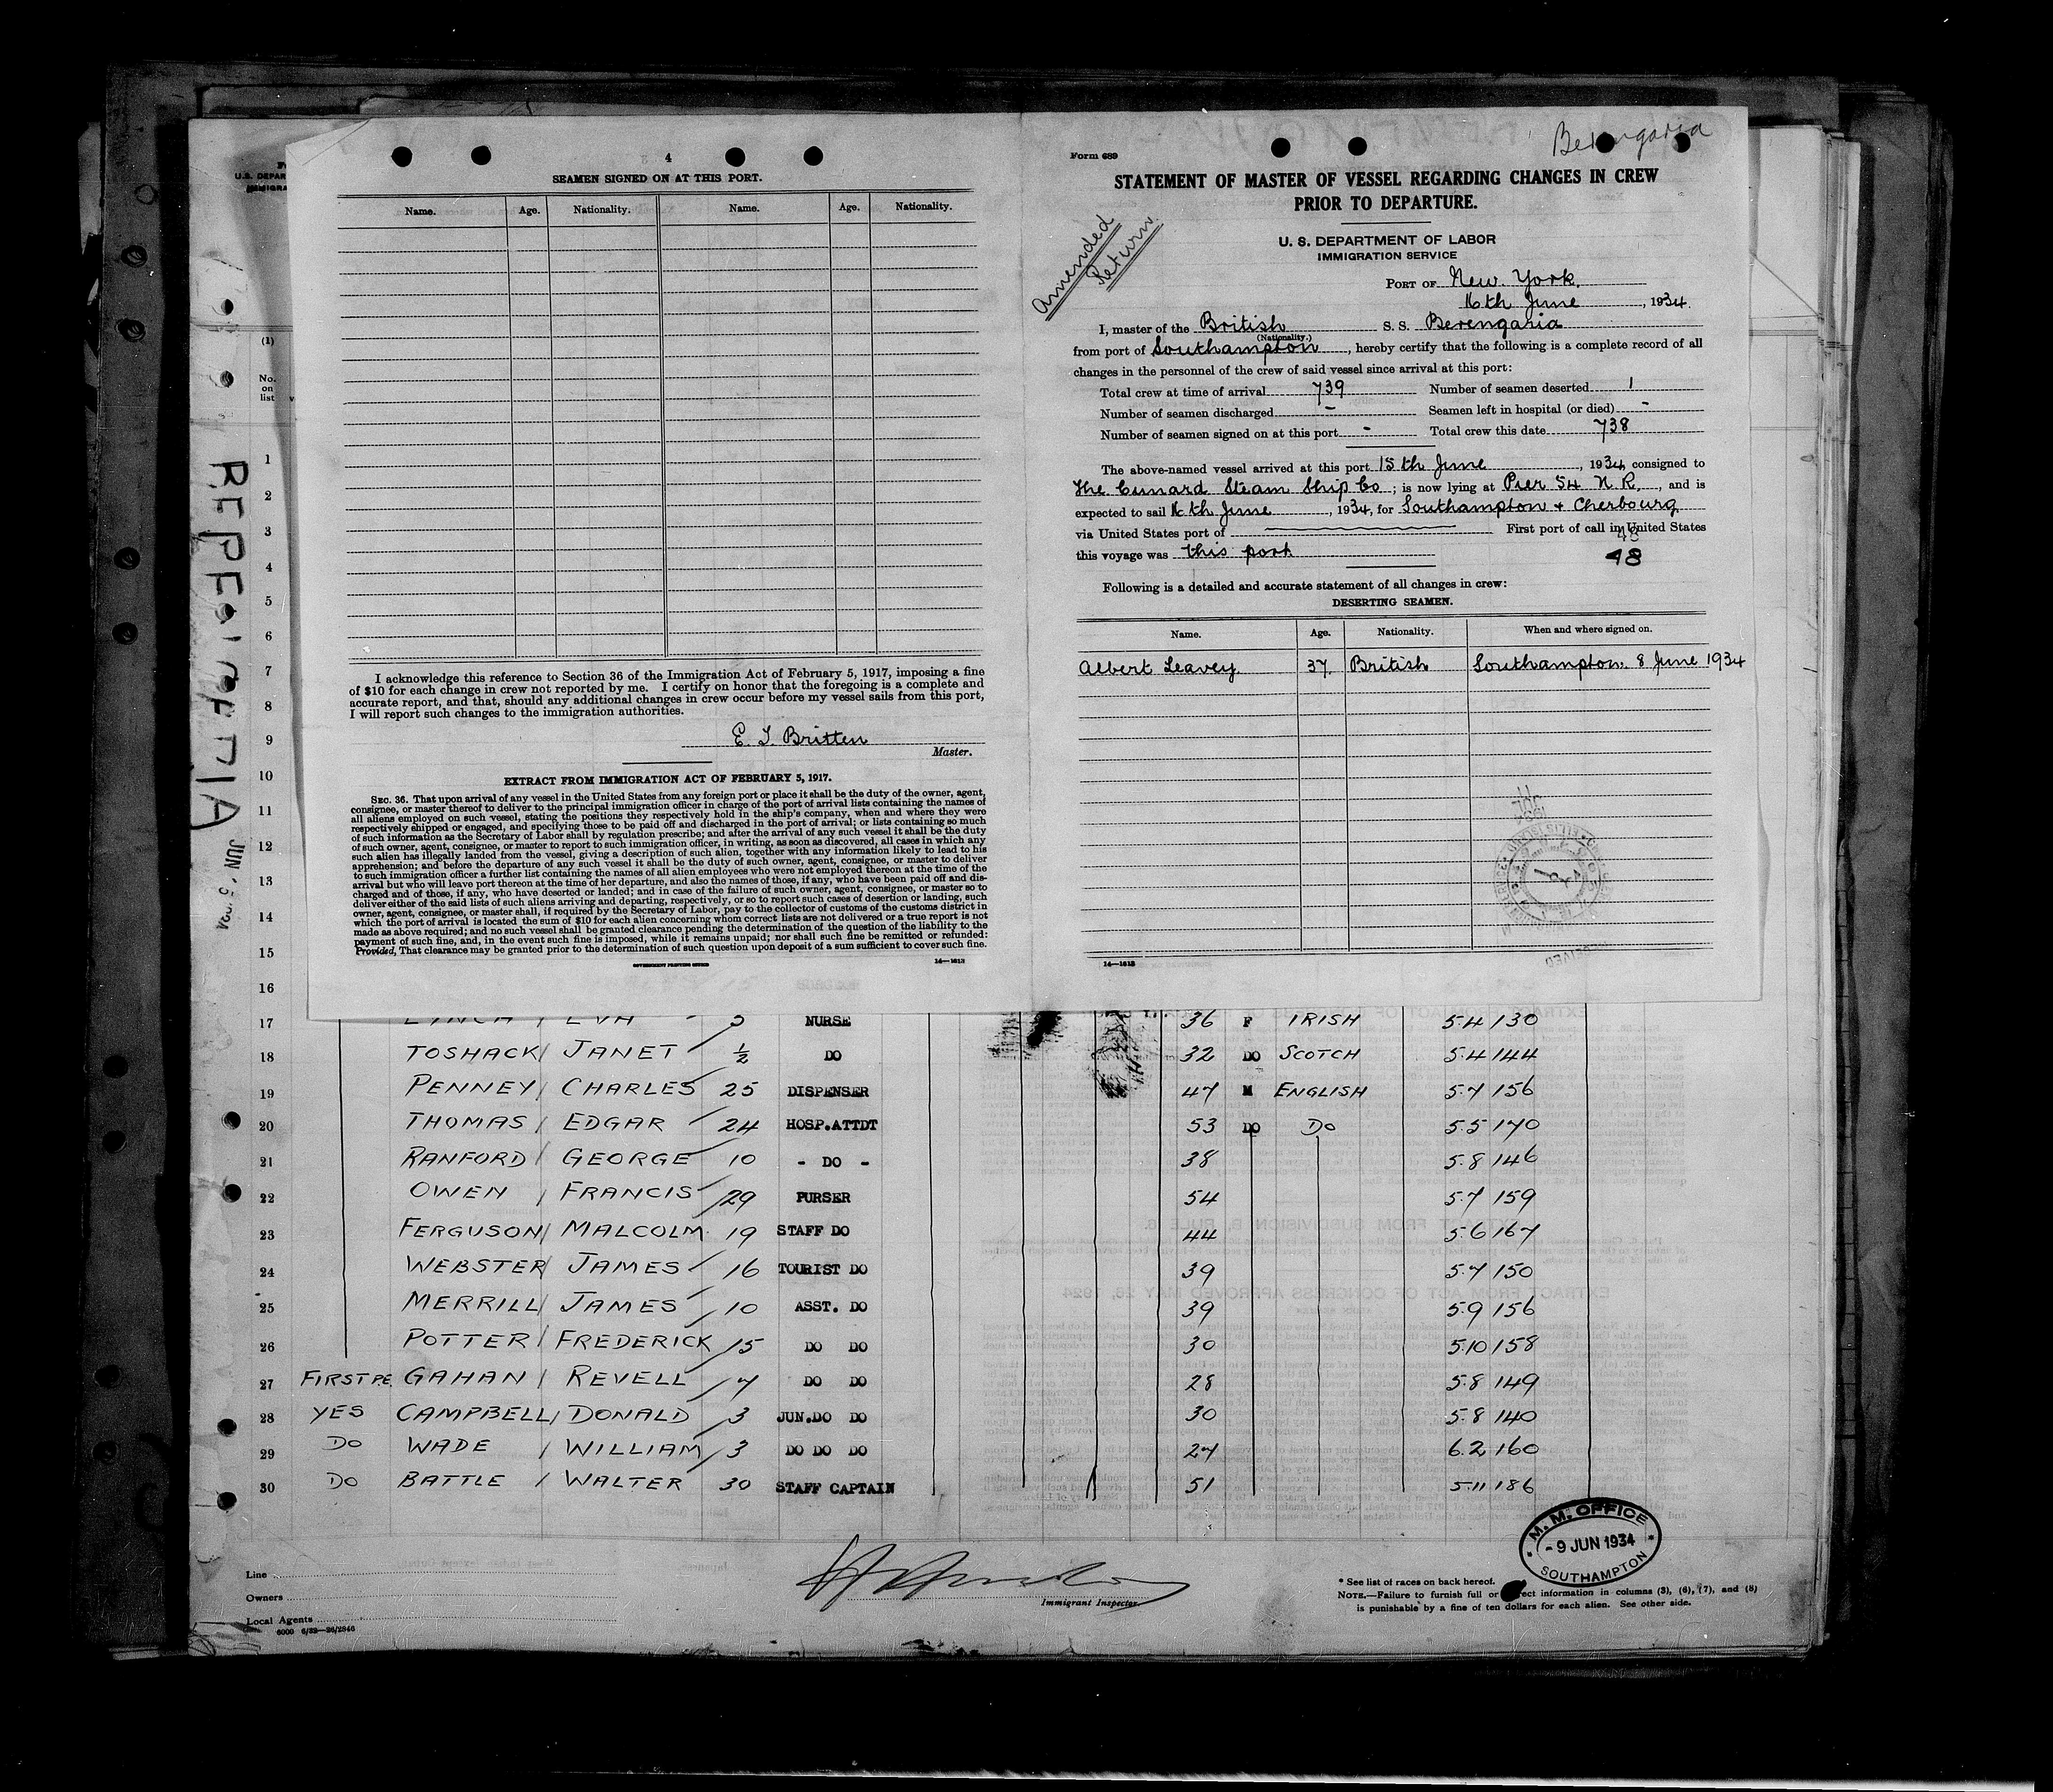 4
SEAMEN SIGNED ON AT THIS PORT.
Name. Age. Nationality. Name. Age. Nationality.
I acknowledge this reference to Section 36 of the Immigration Act of February 5, 1917, imposing a fine
of $10 for each change in crew not reported by me. I certify on honor that the foregoing is a complete and
accurate report, and that, should any additional changes in crew occur before my vessel sails from this port,
I will report such changes to the immigration authorities.
E. T. Britten
Master.
EXTRACT FROM IMMIGRATION ACT OF FEBRUARY 5, 1917.
SEC. 36. That upon arrival of any vessel in the United States from any foreign port or place it shall be the duty of the owner, agent,
consignee, or master thereof to deliver to the principal immigration officer in charge of the port of arrival lists containing the names of
all aliens employed on such vessel, stating the positions they respectively hold in the ship's company, when and where they were
respectively shipped or engaged, and specifying those to be paid off and discharged in the port of arrival; or lists containing so much
of such information as the Secretary of Labor shall by regulation prescribe; and after the arrival of any such vessel it shall be the duty
of such owner, agent, consignee, or master to report to such immigration officer, in writing, as soon as discovered, all cases in which any
such alien has illegally landed from the vessel, giving a description of such alien, together with any information likely to lead to his
apprehension; and before the departure of any such vessel it shall be the duty of such owner, agent, consignee, or master to deliver
to such immigration officer a further list containing the names of all alien employees who were not employed thereon at the time of the
arrival but who will leave port thereon at the time of her departure, and also the names of those, if any, who have been paid off and dis-
charged and of those, if any, who have deserted or landed; and in case of the failure of such owner, agent, consignee, or master so to
deliver either of the said lists of such aliens arriving and departing, respectively, or so to report such cases of desertion or landing, such
owner, agent, consignee, or master shall, if required by the Secretary of Labor, pay to the collector of customs of the customs district in
which the port of arrival is located the sum of $10 for each alien concerning whom correct lists are not delivered or a true report is not
made as above required; and no such vessel shall be granted clearance pending the determination of the question of the liability to the
payment of such fine, and, in the event such fine is imposed, while it remains unpaid; nor shall such fine be remitted or refunded:
Provided, That clearance may be granted prior to the determination of such question upon deposit of a sum sufficient to cover such fine.
GOVERNMENT PRINTING OFFICE 14—1613
Berengaria
Form 689
STATEMENT OF MASTER OF VESSEL REGARDING CHANGES IN CREW
PRIOR TO DEPARTURE.
Amended
Return
U. S. DEPARTMENT OF LABOR
IMMIGRATION SERVICE
PORT OF New York,
16th June, 1934.
I, master of the British S. S. Berengaria
(Nationality.)
from port of Southampton, hereby certify that the following is a complete record of all
changes in the personnel of the crew of said vessel since arrival at this port:
Total crew at time of arrival 739 Number of seamen deserted 1
Number of seamen discharged - Seamen left in hospital (or died) -
Number of seamen signed on at this port - Total crew this date 738
The above-named vessel arrived at this port 15th June, 1934, consigned to
The Cunard Steam Ship Co; is now lying at Pier 54 N.R., and is
expected to sail 16th June, 1934, for Southampton + Cherbourg
via United States port of First port of call in United States
48
this voyage was this port
48
Following is a detailed and accurate statement of all changes in crew:
DESERTING SEAMEN.
Name. Age. Nationality. When and where signed on.
Albert Leavey. 37. British Southampton. 8 June 1934
14—1613
U.S. DEPAR
IMMIGRA
(1)
No.
on
list
1
2
3
4
5
6
7
8
9
10
11
12
13
14
15
16
17 LYNCH / EVA 5 NURSE 36 F IRISH 5.4 130
18 TOSHACK / JANET ½ DO 32 DO SCOTCH 5.4 144
19 PENNEY / CHARLES 25 DISPENSER 47 M ENGLISH 5.7 156
20 THOMAS / EDGAR 24 HOSP.ATTDT 53 DO DO 5.5 170
21 RANFORD / GEORGE 10 - DO - 38 5.8 146
22 OWEN / FRANCIS 29 PURSER 54 5.7 159
23 FERGUSON / MALCOLM 19 STAFF DO 44 5.6 167
24 WEBSTER / JAMES 16 TOURIST DO 39 5.7 150
25 MERRILL / JAMES 10 ASST. DO 39 5.9 156
26 POTTER / FREDERICK 15 DO DO 30 5.10 158
27 FIRST PE. GAHAN / REVELL 7 DO DO 28 5.8 149
28 YES CAMPBELL / DONALD 3 JUN.DO DO 30 5.8 140
29 DO WADE / WILLIAM 3 DO DO DO 27 6.2 160
30 DO BATTLE / WALTER 30 STAFF CAPTAIN 51 5.11 186
Line
Owners
Local Agents
6000 6/32—26/2846
Immigrant Inspector.
M. M. OFFICE
- 9 JUN 1934
SOUTHAMPTON
* See list of races on back hereof.
NOTE.—Failure to furnish full or rect information in columns (3), (6), (7), and (8)
is punishable by a fine of ten dollars for each alien. See other side.